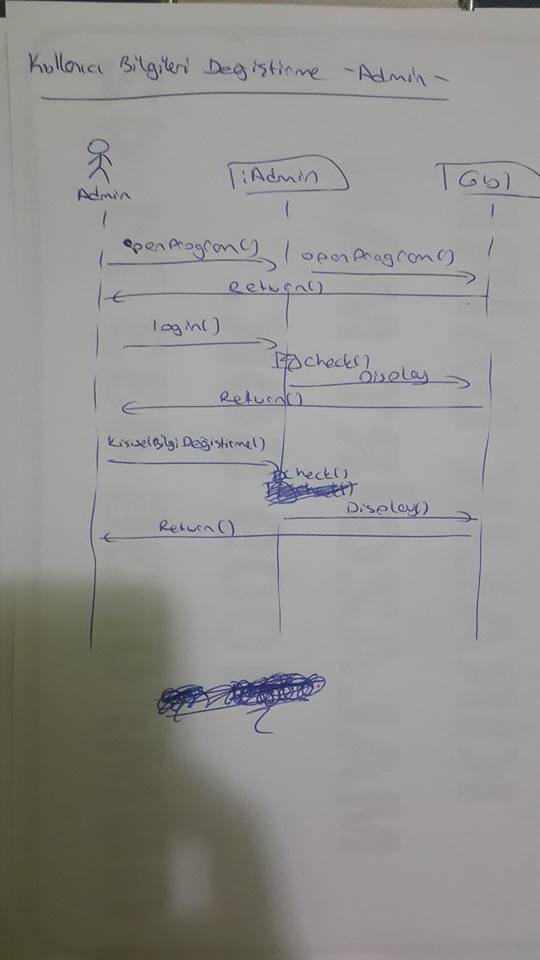 Kullanıcı Bilgileri Değiştirme -Admin-
Admin
:Admin
openProgram()
openProgram()
Return()
login()
check()
Display
Return()
check()
Display()
Return()